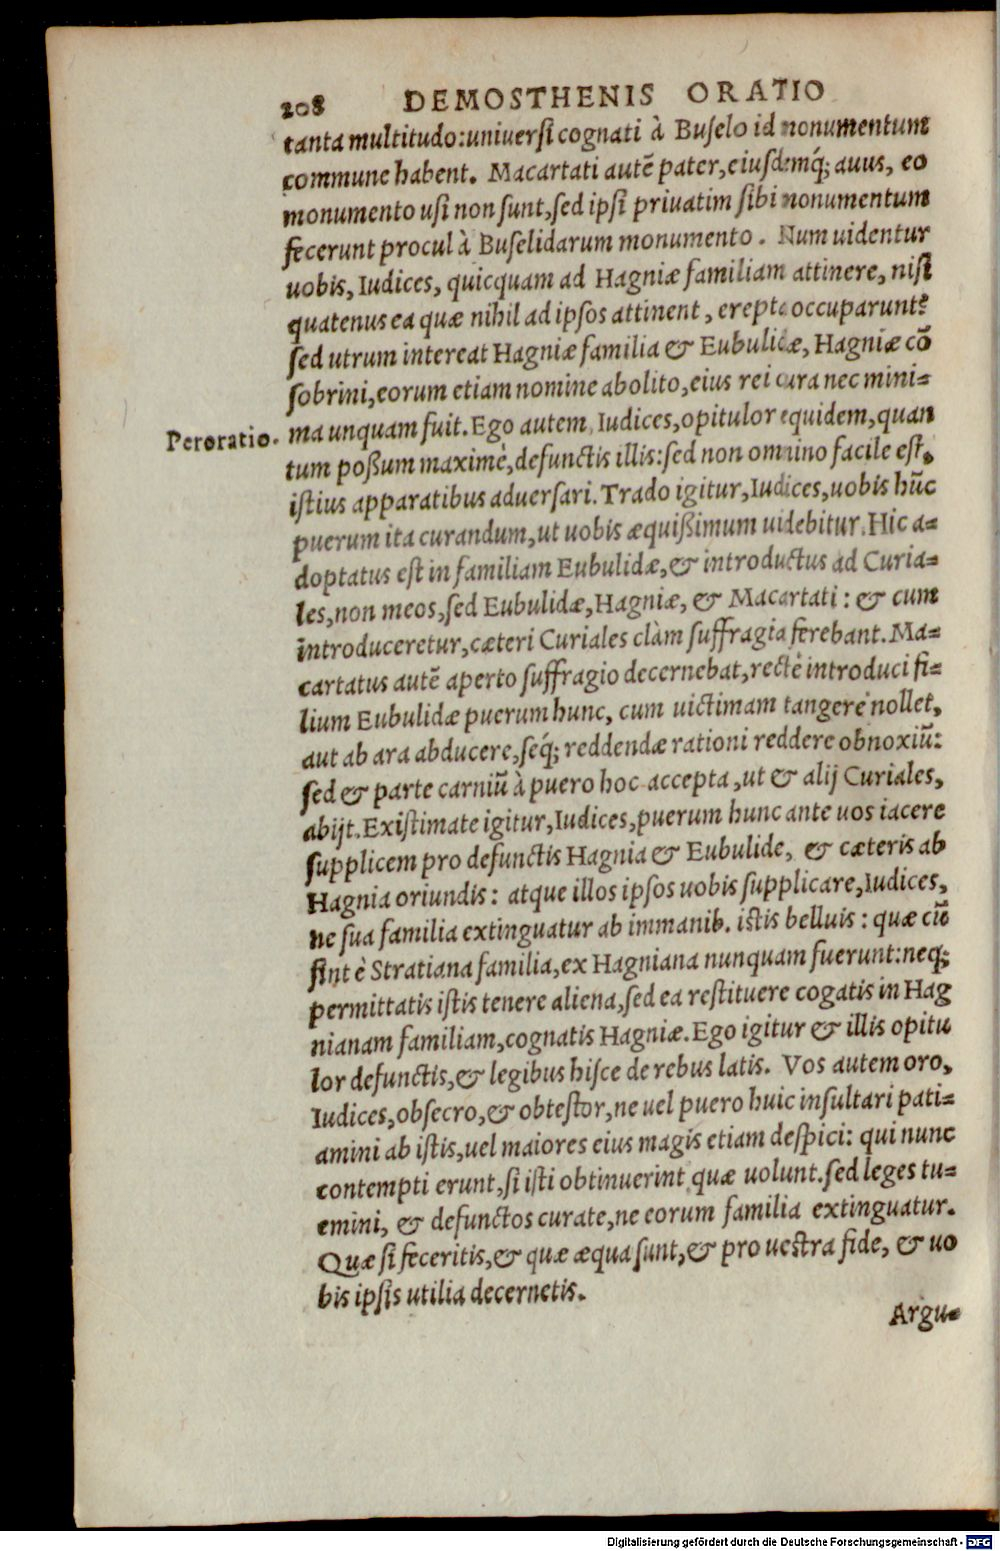 208 DEMOSTHENIS ORATIO
tanta multitudo: universi cognati à Buselo id monumentum
commune habent. Macartati autē pater, eiusdemq́; avus, eo
monumento usi non sunt, sed ipsi privatim sibi monumentum
fecerunt procul à Buselidarum monumento. Num uidentur
uobis, Iudices, quicquam ad Hagniæ familiam attinere, nisi
quatenus ea quæ nihil ad ipsos attinent, erepta occuparunt?
sed utrum intereat Hagniæ familia & Eubulidæ, Hagniæ cō
sobrini, eorum etiam nomine abolito, eius rei cura nec mini-
Peroratio. ma unquam fuit. Ego autem, Iudices, opitulor equidem, quan
tum possum maximè, defunctis illis: sed non omnino facile est,
istius apparatibus adversari. Trado igitur, Iudices, uobis hūc
puerum ita curandum, ut uobis æquissimum uidebitur. Hic a-
doptatus est in familiam Eubulidæ, & introductus ad Curia-
les, non meos, sed Eubulidæ, Hagniæ, & Macartati: & cum
introduceretur, cæteri Curiales clàm suffragia ferebant. Ma-
cartatus autē aperto suffragio decernebat, rectè introduci fi-
lium Eubulidæ puerum hunc, cum uictimam tangere nollet,
aut ab ara abducere, seq́; reddendæ rationi reddere obnoxiū:
sed & parte carniū à puero hoc accepta, ut & alij Curiales,
abijt. Existimate igitur, Iudices, puerum hunc ante uos iacere
supplicem pro defunctis Hagnia & Eubulide, & cæteris ab
Hagnia oriundis: atque illos ipsos uobis supplicare, Iudices,
ne sua familia extinguatur ab immanib. istis belluis: quæ cū
sint è Stratiana familia, ex Hagniana nunquam fuerunt: neq;
permittatis istis tenere aliena, sed ea restituere cogatis in Hag
nianam familiam, cognatis Hagniæ. Ego igitur & illis opitu
lor defunctis, & legibus hisce de rebus latis. Vos autem oro,
Iudices, obsecro, & obtestor, ne uel puero huic insultari pati-
amini ab istis, uel maiores eius magis etiam despici: qui nunc
contempti erunt, si isti obtinuerint quæ uolunt. sed leges tu-
emini, & defunctos curate, ne eorum familia extinguatur.
Quæ si feceritis, & quæ æqua sunt, & pro uestra fide, & uo
bis ipsis utilia decernetis.
Argu-
Digitalisierung gefördert durch die Deutsche Forschungsgemeinschaft - DFG